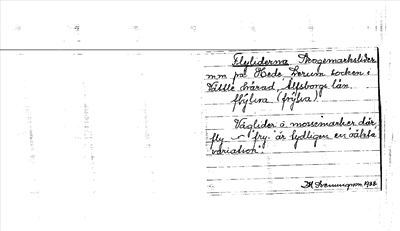 Flyliderna Skogemarkslider
mm på Hede, Lerum socken,
Vättle härad, Älfsborgs län.
flylina (frylia)
Väglider å mossemarker där
fly ~ fry är tydligen en vättle
variation.
1928